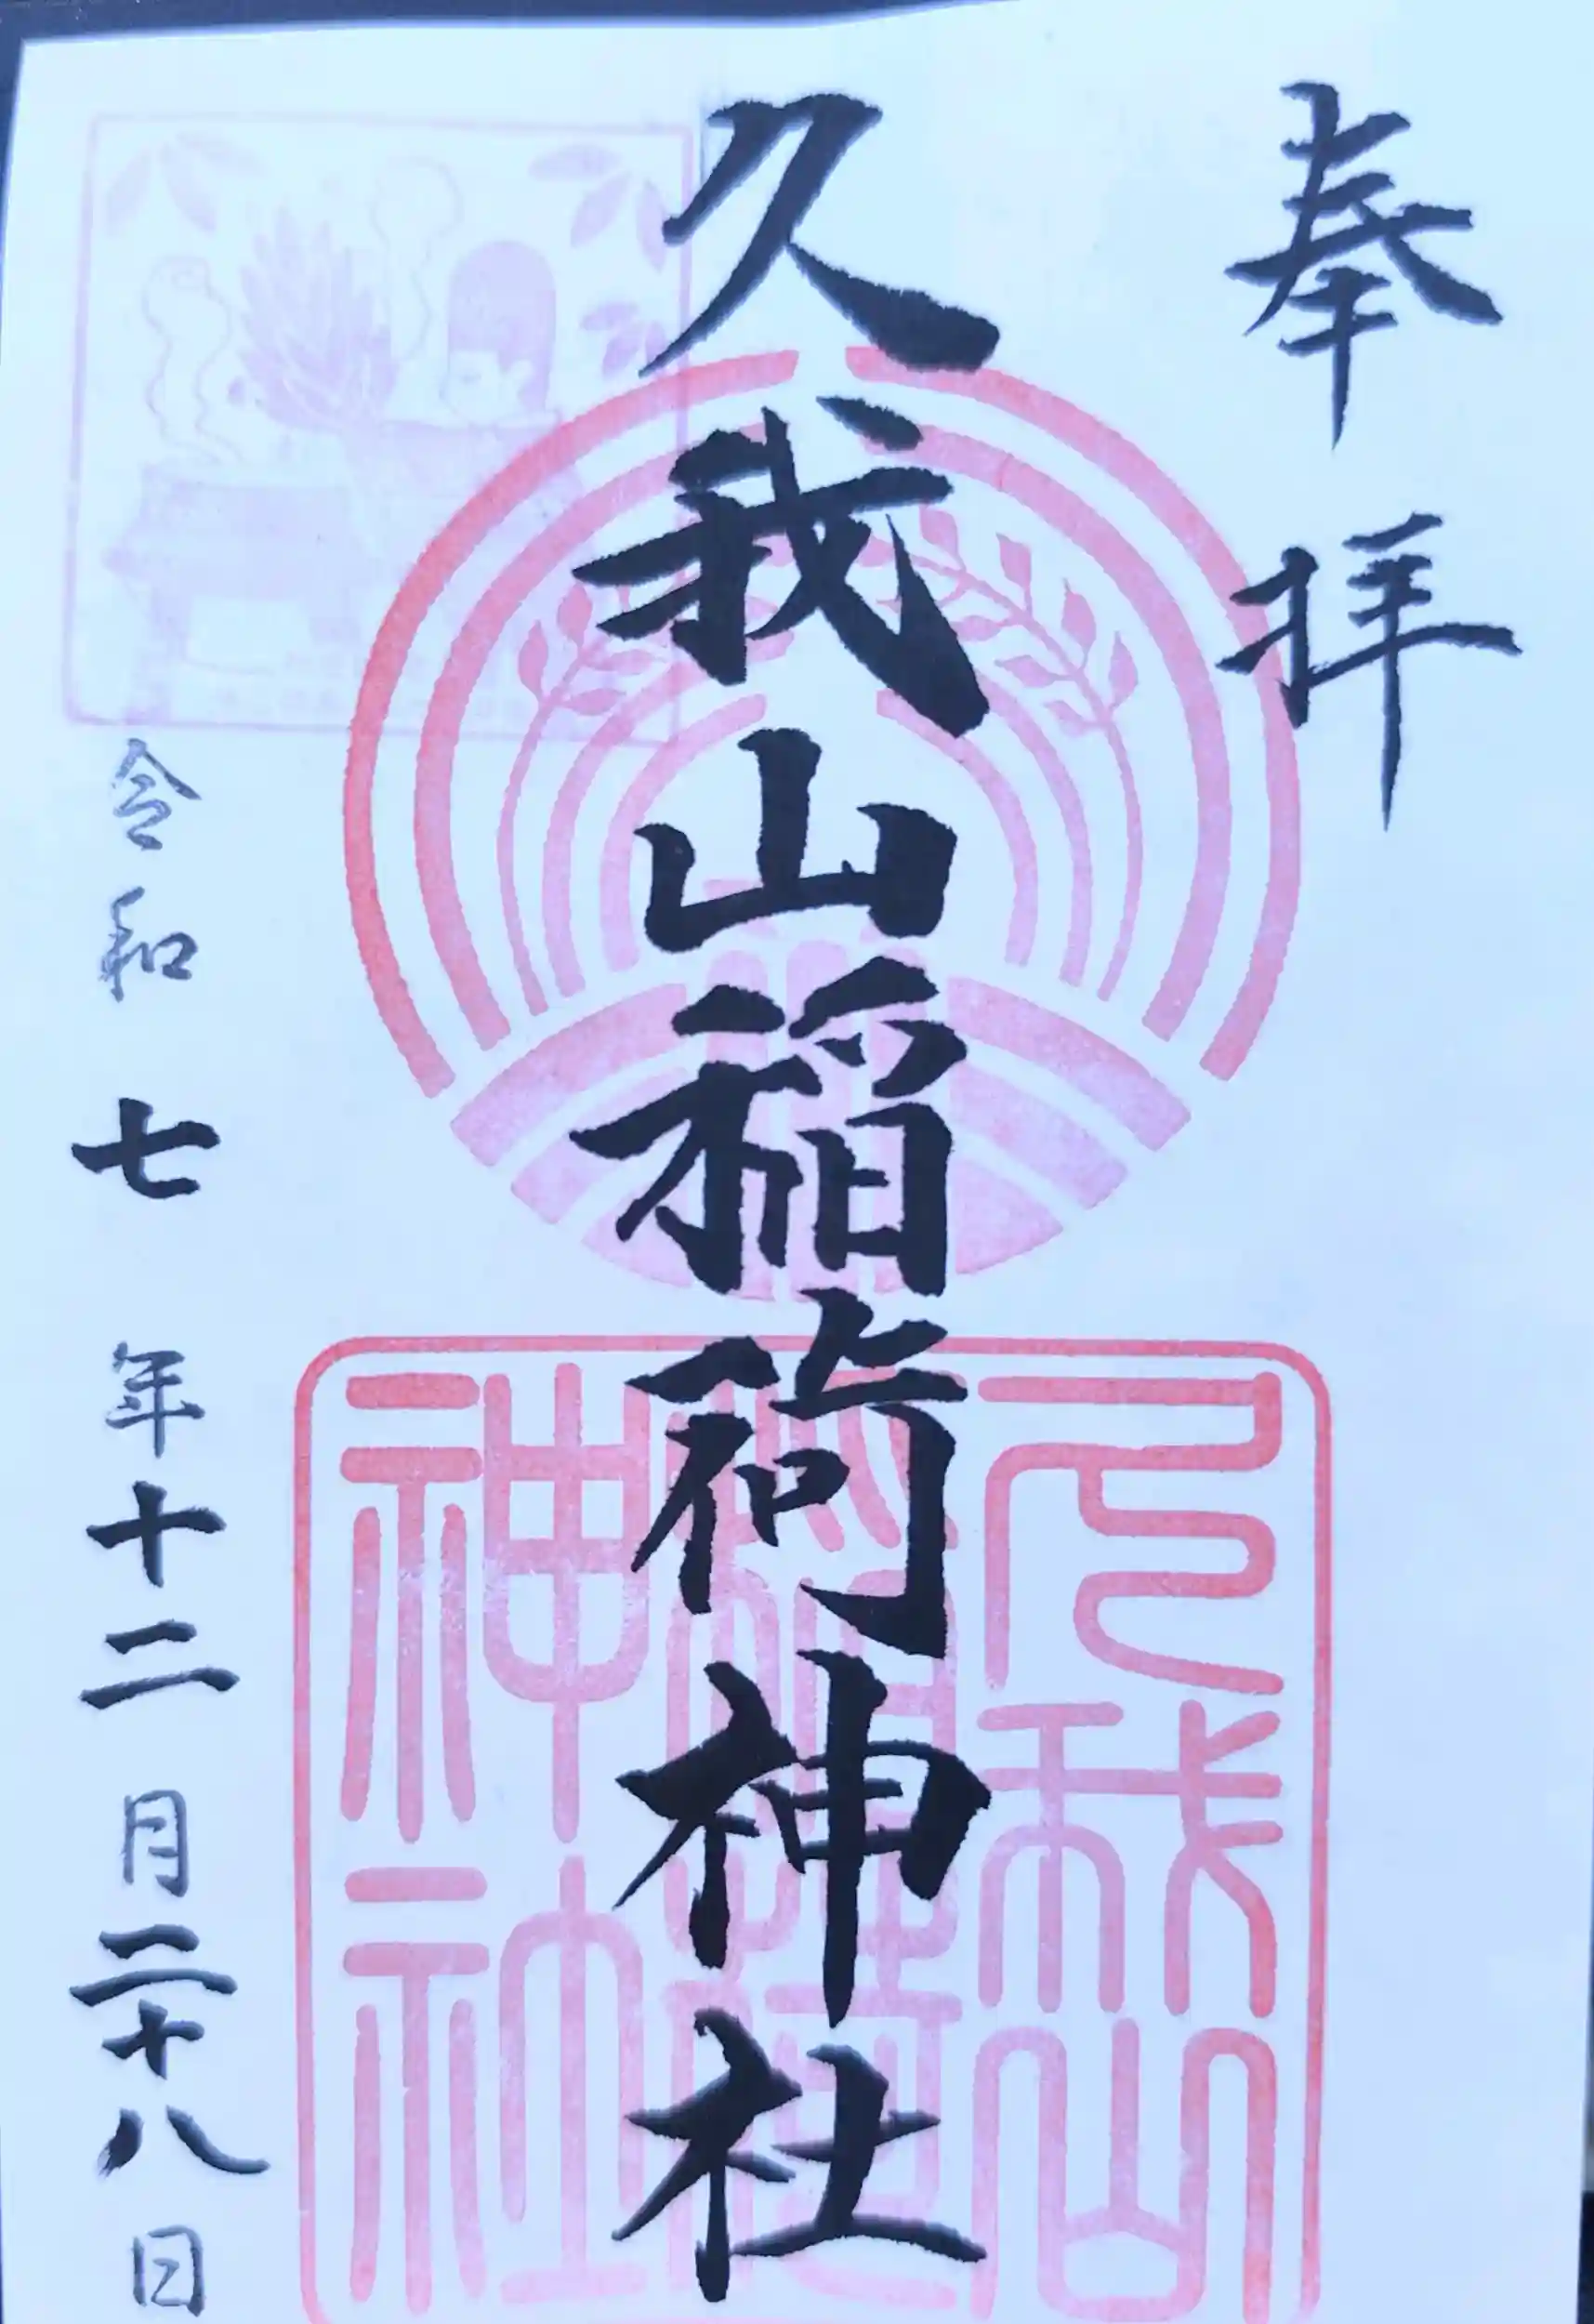 奉拝
久我山稲荷神社
令和七年十二月二十八日
久我山
稲荷
神社